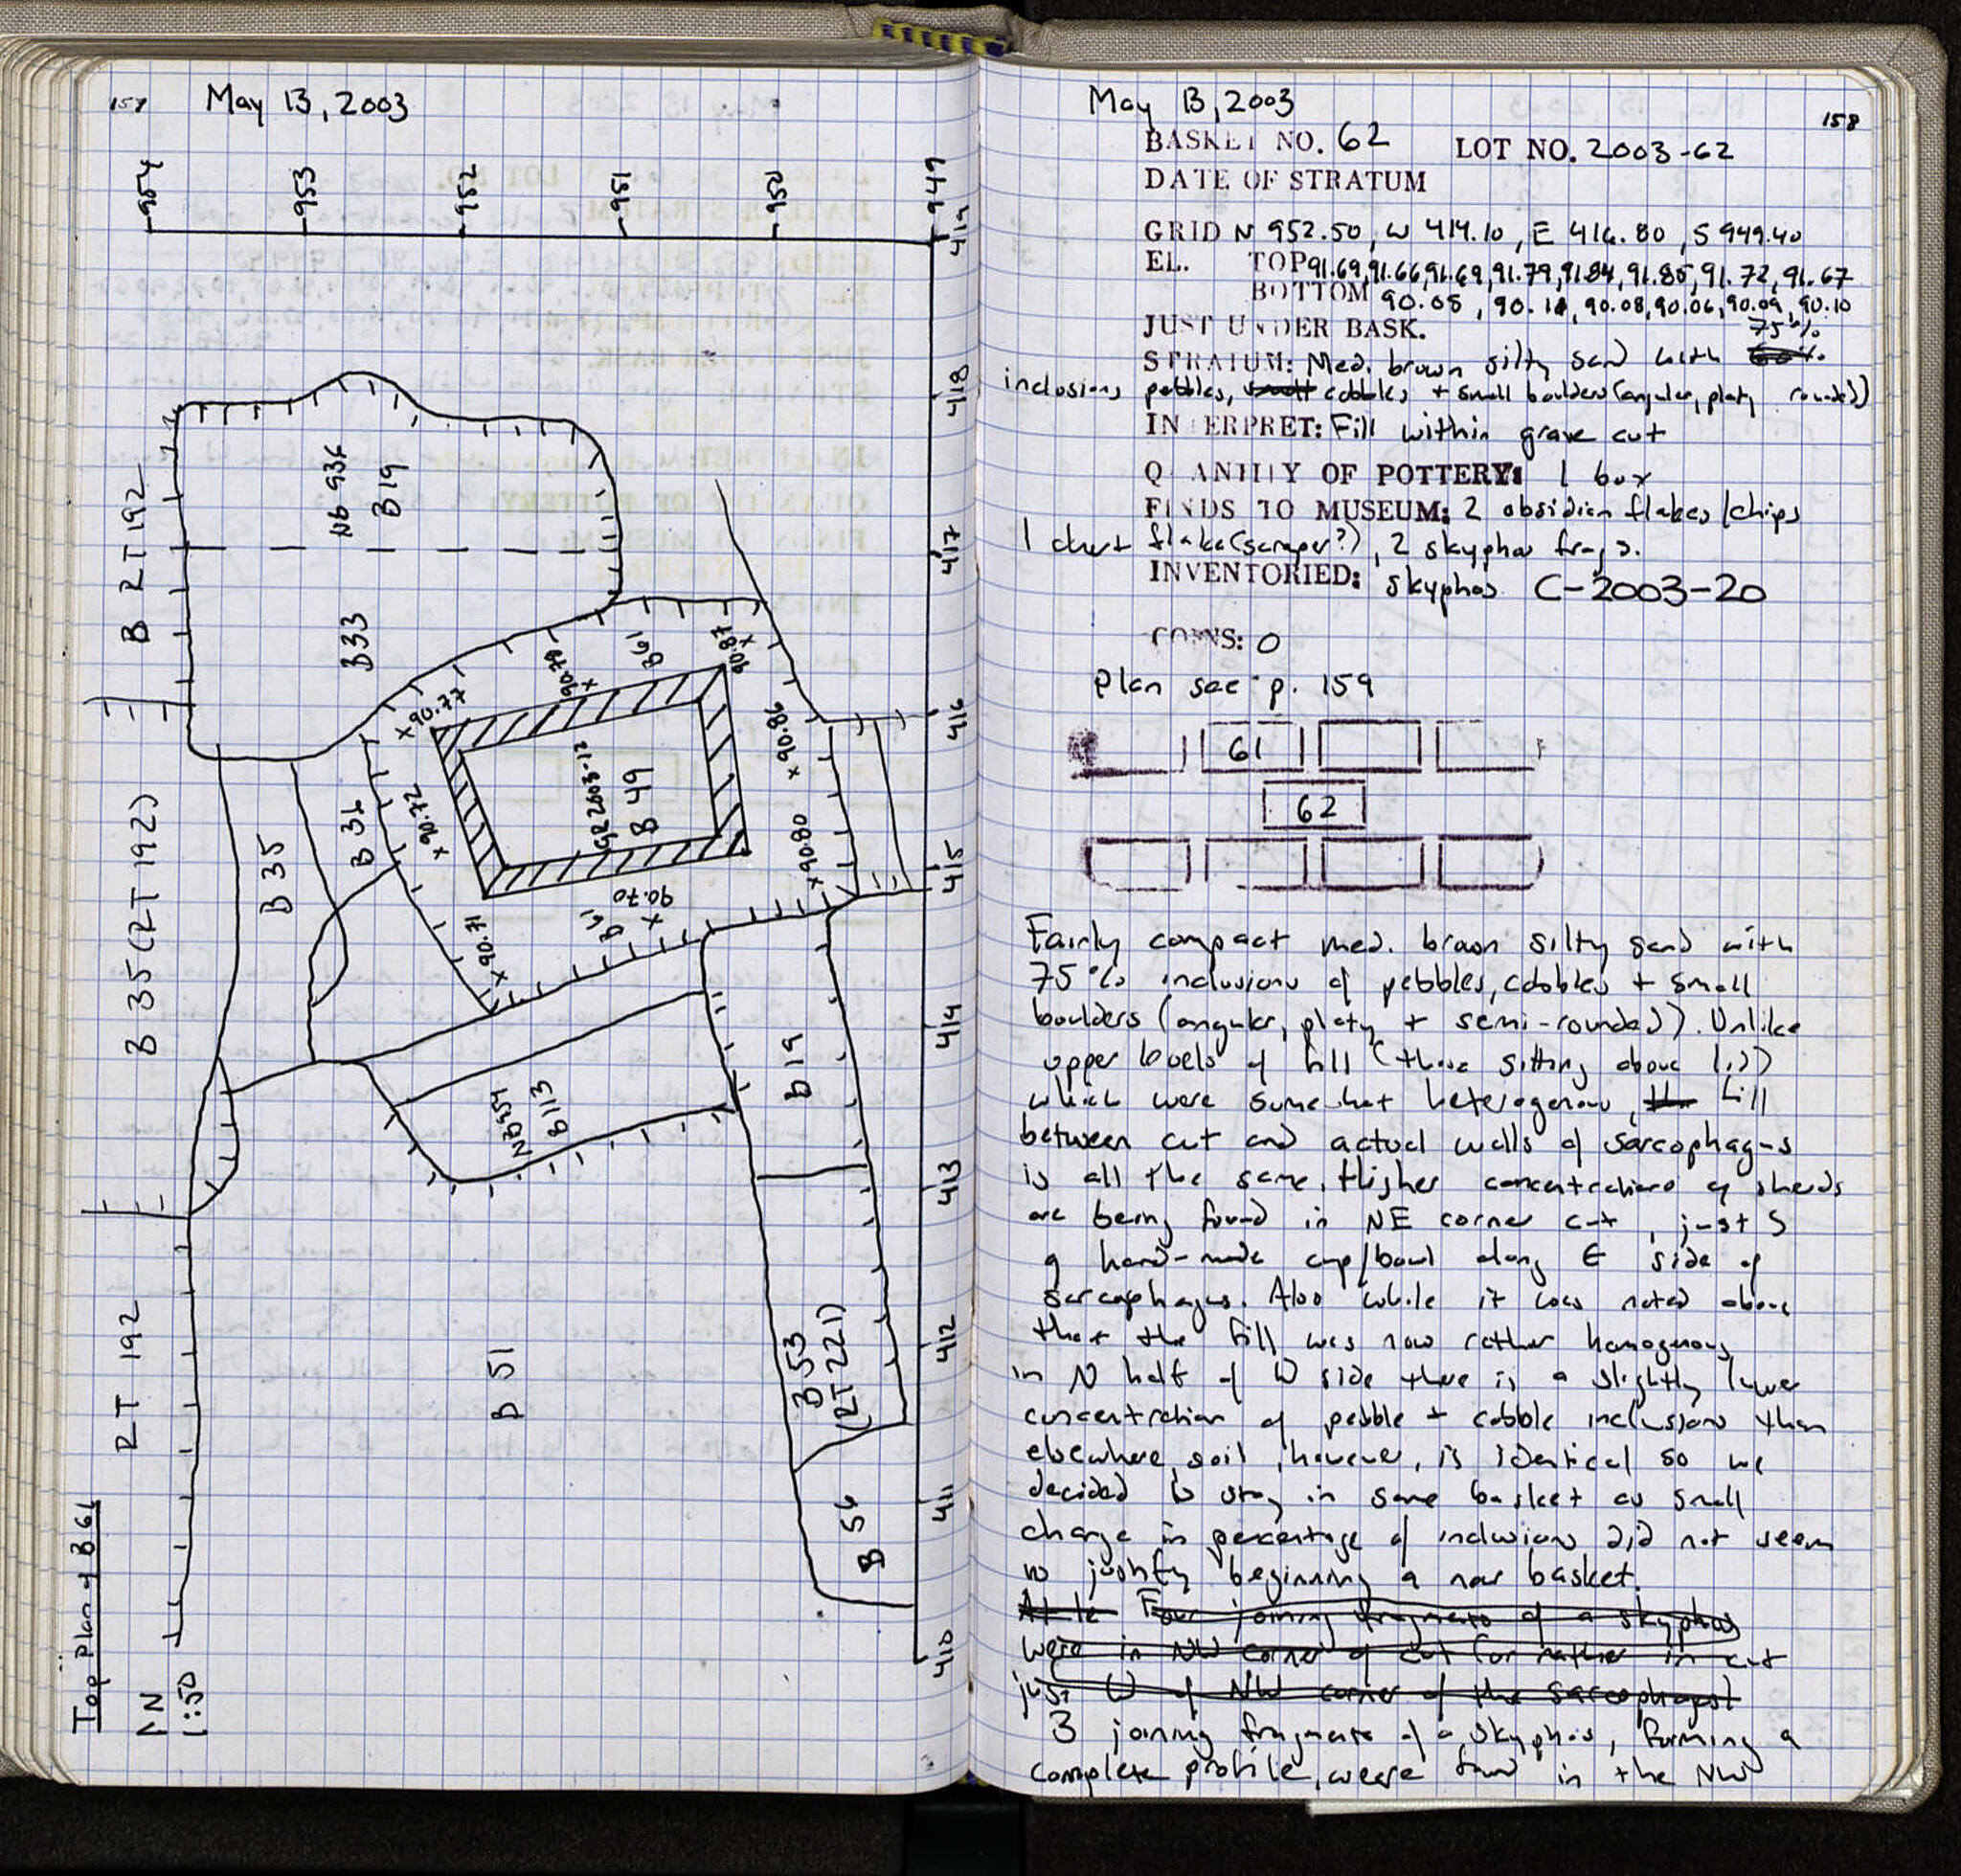 157
May 13, 2003
954
953
952
951
950
949
419
418
417
416
415
414
413
412
411
410
B RT 192
Nb 936
B19
B33
B61
90.79
90.87
90.77
90.86
B 35 (RT 192)
B 35
B 36
90.72
GR 2003-12
B 49
90.80
90.71
B 61
90.70
NB 954
B 113
B 19
RT 192
B 51
B 53
(RT 221)
B 56
Top plan of B 61
N
1:50
May 13, 2003
158
BASKET NO. 62 LOT NO. 2003-62
DATE OF STRATUM
GRID N 952.50, W 414.10, E 416.80, S 949.40
EL. TOP 91.69, 91.66, 91.69, 91.79, 91.84, 91.85, 91.72, 91.67
BOTTOM 90.08, 90.11, 90.08, 90.06, 90.09, 90.10
JUST UNDER BASK.
75%
STRATUM: Med. brown silty sand with 60%
inclusions pebbles, small cobbles + small boulders (angular, platy rounded)
INTERPRET: Fill within grave cut
QUANTITY OF POTTERY: 1 box
FINDS TO MUSEUM: 2 obsidian flakes/chips
1 chert flake (scraper?), 2 skyphos frags.
INVENTORIED: skyphos C-2003-20
COINS: 0
plan see p. 159
61
62
Fairly compact med. brown silty sand with
75% inclusions of pebbles, cobbles + small
boulders (angular, platy + semi-rounded). Unlike
upper levels of fill (those sitting above lid)
which were somewhat heterogenous, the fill
between cut and actual walls of sarcophagus
is all the same. Higher concentrations of sherds
are being found in NE corner cut, just S
of hand-made cup/bowl along E side of
sarcophagus. Also while it was noted above
that the fill was now rather homogenous,
in N half of W side there is a slightly lower
concentration of pebble + cobble inclusions than
elsewhere soil, however, is identical so we
decided to stay in same basket as small
change in percentage of inclusions did not seem
to justify beginning a new basket.
At le Four joining fragments of a skyphos
were in NW corner of cut (or rather in cut
just W of NW corner of the sarcophagus)
3 joining fragments of a skyphos, forming a
complete profile, were found in the NW